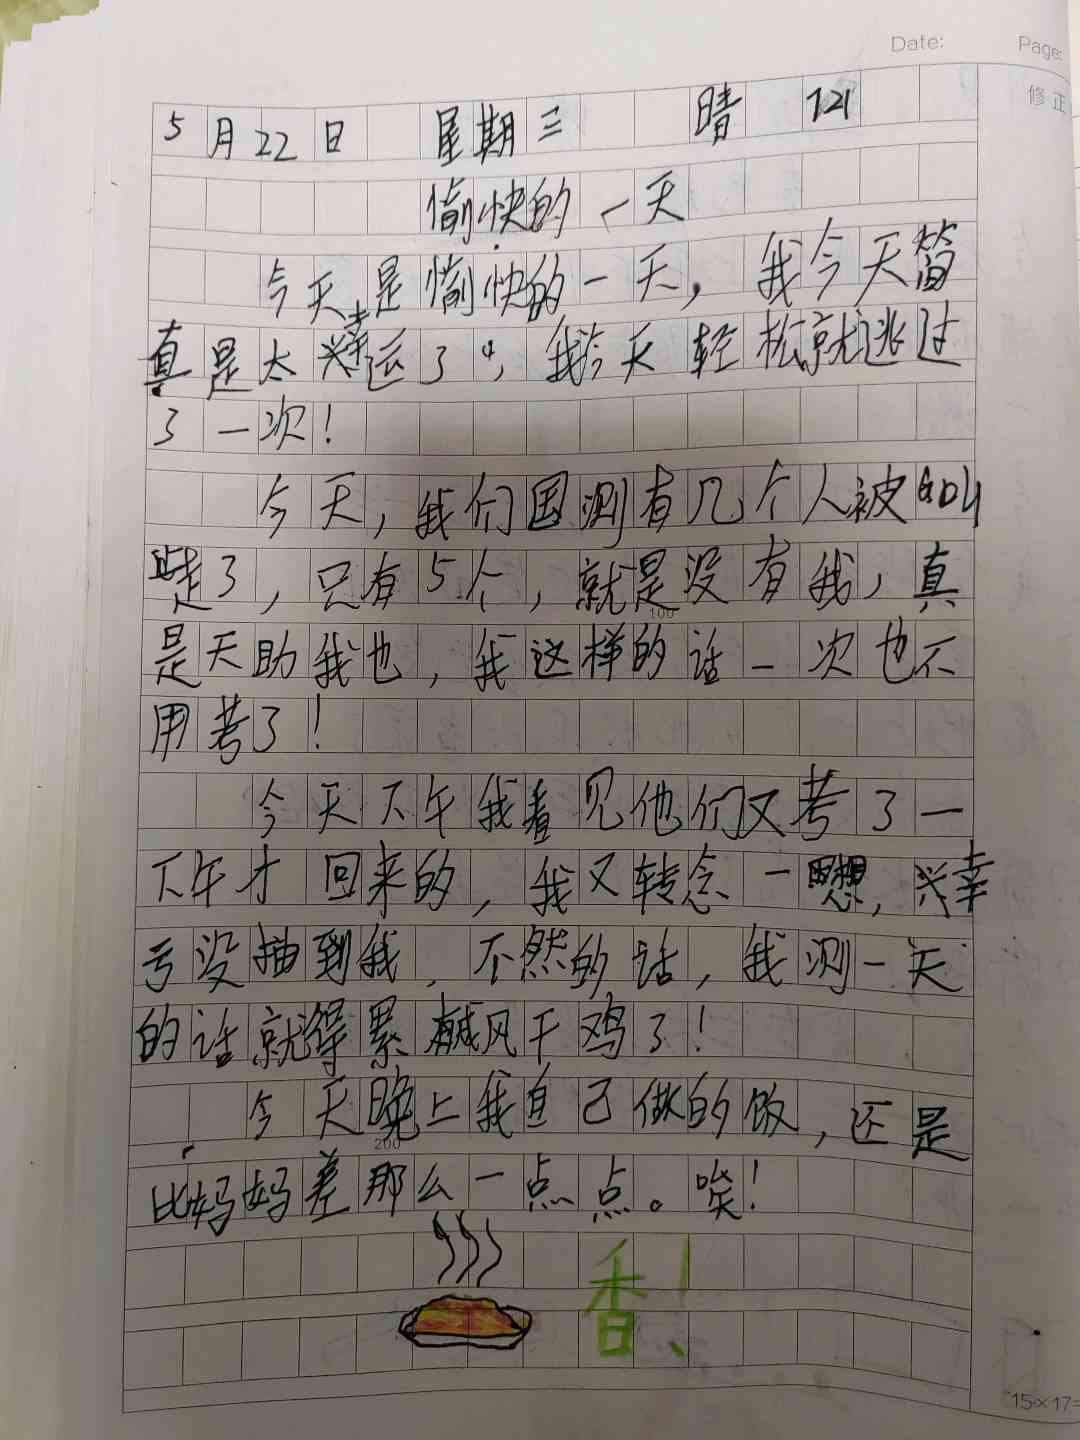 Date: Page:
修正
5月22日 星期三 晴 121
愉快的一天
今天是愉快的一天，我今天简
真是太幸运了，我今天轻松就逃过
了一次！
今天，我们国测有几个人被叫
走了，只有5个，就是没有我，真
100
是天助我也，我这样的话一次也不
用考了！
今天下午我看见他们又考了一
下午才回来的，我又转念一想，幸
亏没抽到我，不然的话，我测一天
的话就得累成风干鸡了！
今天晚上我自己做的饭，还是
200
比妈妈差那么一点点。唉！
香！
15×17=